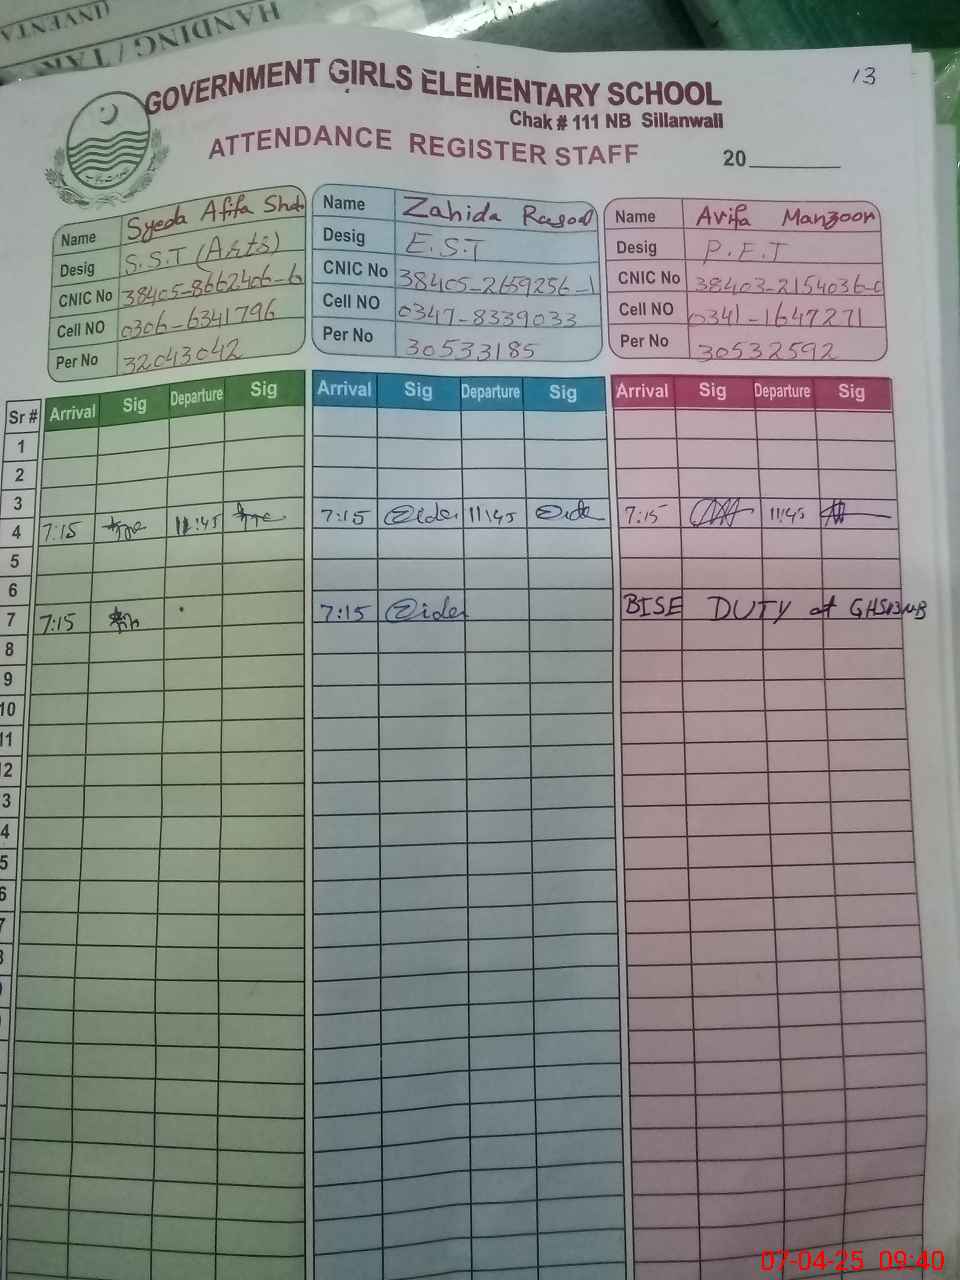 HANDING / TAK
(INVENTA
13
GOVERNMENT GIRLS ELEMENTARY SCHOOL
Chak # 111 NB Sillanwali
ATTENDANCE REGISTER STAFF
20
Name Syeda Afifa Shah
Desig S.S.T (Arts)
CNIC No 38405-8662406-6
Cell NO 0306-6341796
Per No 32043042
Name Zahida Rasool
Desig E.S.T
CNIC No 38405-2659256-1
Cell NO 0347-8339033
Per No 30533185
Name Arifa Manzoor
Desig P.E.T
CNIC No 38403-2154036-0
Cell NO 0341-1647271
Per No 30532592
Sr # Arrival Sig Departure Sig Arrival Sig Departure Sig Arrival Sig Departure Sig
1
2
3
4 7:15 11:45 7:15 11:45 7:15 11:45
5
6
7 7:15 7:15 BISE DUTY at
8
9
10
11
12
3
4
5
6
7
07-04-25 09:40